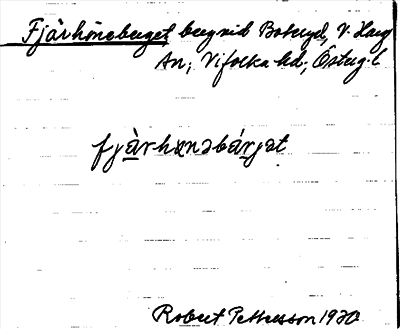 Fjärhöneberget berg vid Boberyd, V. Harg
An; Vifolka hd; Östergl
fjärhɶnəbárjət
Robert Pettersson 1920